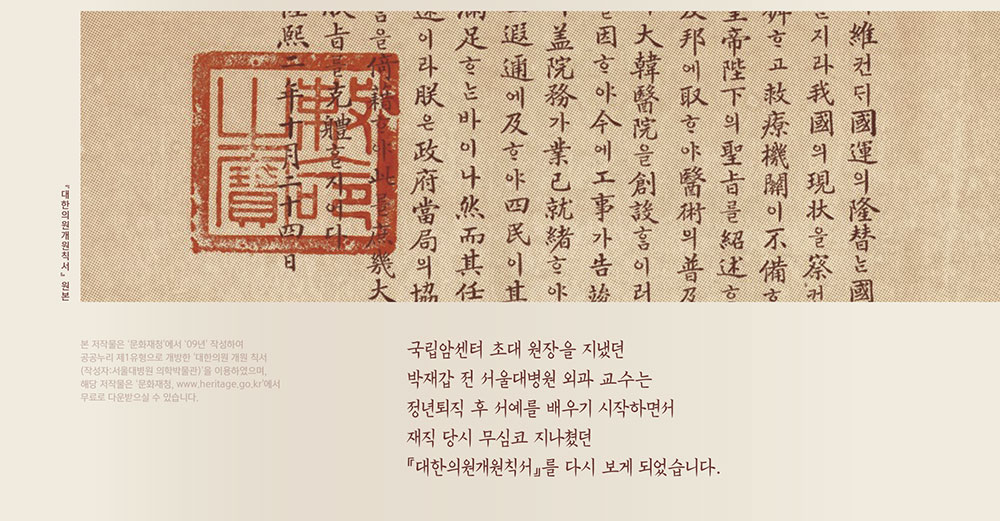 維컨ᄃᆡ國運의隆替는國
지라我國의現状을察커
ᄒᆞ고救療機關이不備ᄒᆞ
皇帝陛下의聖旨를紹述ᄒᆞ
邦에取ᄒᆞ야醫術의普及
大韓醫院을創設ᄒᆞᆷ이러
을因ᄒᆞ야今에工事가告竣
盖院務가業已就緖ᄒᆞ야
遐邇에及ᄒᆞ야四民이其
滿足ᄒᆞ는바이나然而其任
이라朕은政府當局의協
을倚藉ᄒᆞ야此를庶幾大
旨를克體ᄒᆞᆯ지어다
隆熙二年十月二十四日
勅命之寶
『대한의원개원칙서』 원본
본 저작물은 '문화재청'에서 '09년' 작성하여
공공누리 제1유형으로 개방한 '대한의원 개원 칙서
(작성자:서울대병원 의학박물관)'을 이용하였으며,
해당 저작물은 '문화재청, www.heritage.go.kr'에서
무료로 다운받으실 수 있습니다.
국립암센터 초대 원장을 지냈던
박재갑 전 서울대병원 외과 교수는
정년퇴직 후 서예를 배우기 시작하면서
재직 당시 무심코 지나쳤던
『대한의원개원칙서』를 다시 보게 되었습니다.